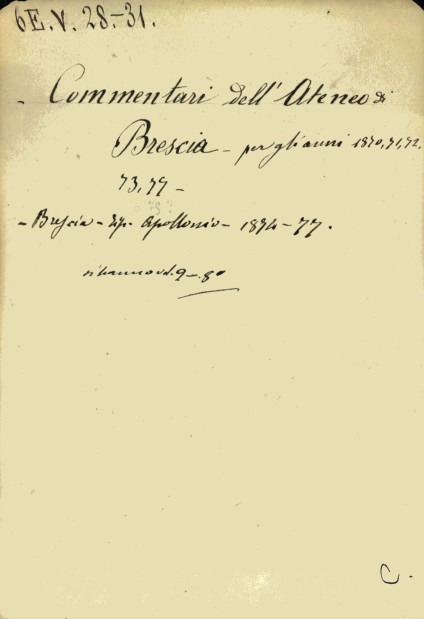 6E.V. 28-31.
- Commentari dell' Ateneo di
Brescia - per gli anni 1870, 71, 72,
73, 77 -
- Brescia - Tip. Apollonio - 1874-77.
8º
C.